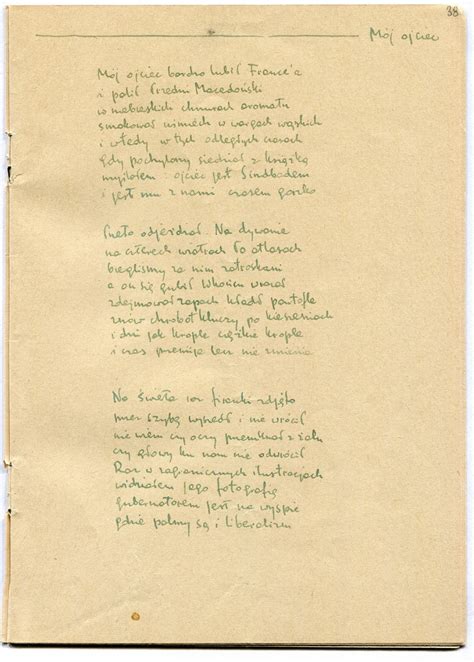 38
Mój ojciec
Mój ojciec bardzo lubił France'a
i palił Średni Macedoński
w niebieskich chmurach aromatu
smakował uśmiech w wargach wąskich
i wtedy w tych odległych czasach
gdy pochylony siedział z książką
myślałem : ojciec jest Sindbadem
i jest mu z nami czasem gorzko
Przeto odjeżdżał. Na dywanie
na czterech wiatrach Po atlasach
biegliśmy za nim zatroskani
a on się gubił W końcu wracał
zdejmował zapach kładł pantofle
znów chrobot kluczy po kieszeniach
i dni jak krople ciężkie krople
i czas przemija lecz nie zmienia
Na święta raz firanki zdjęto
przez szybę wyszedł i nie wrócił
nie wiem czy oczy przymknął z żalu
czy głowy ku nam nie odwrócił
Raz w zagranicznych ilustracjach
widziałem jego fotografię
gubernatorem jest na wyspie
gdzie palmy są i liberalizm